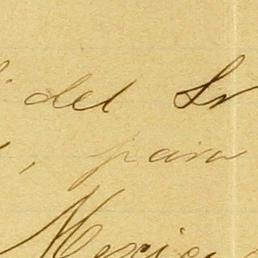 del Sr
, para
Mexico